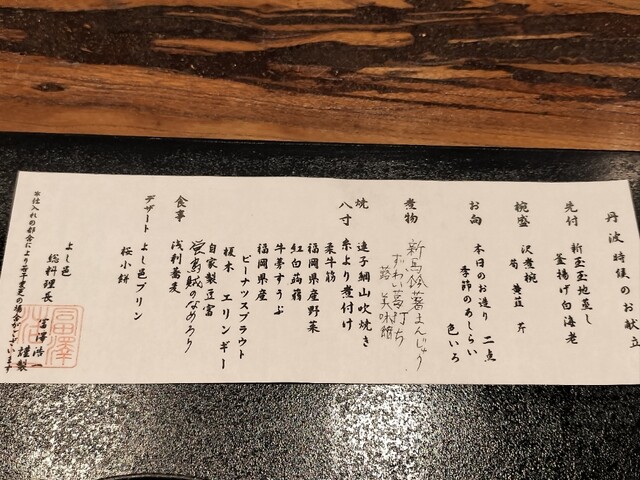 丹波時候のお献立
先付 新玉玉地蒸し
釜揚げ白海老
椀盛 沢煮椀
筍 黄韮 芹
お向 本日のお造り 二点
季節のあしらい 色いろ
煮物 新馬鈴薯まんじゅう
ずわい蟹
焼八寸 連子鯛山吹焼き
糸より煮付け
柔牛筋
福岡県産野菜
紅白蒟蒻
牛蒡すうぷ
福岡県産
ピーナツスプラウト
榎木 エリンギー
自家製豆富
蛍烏賊のなめろう
食事 浅利蕎麦
デザート よし邑プリン
桜小餅
よし邑
総料理長
富澤浩一
謹製
※仕入れの都合により若干変更の場合がございます